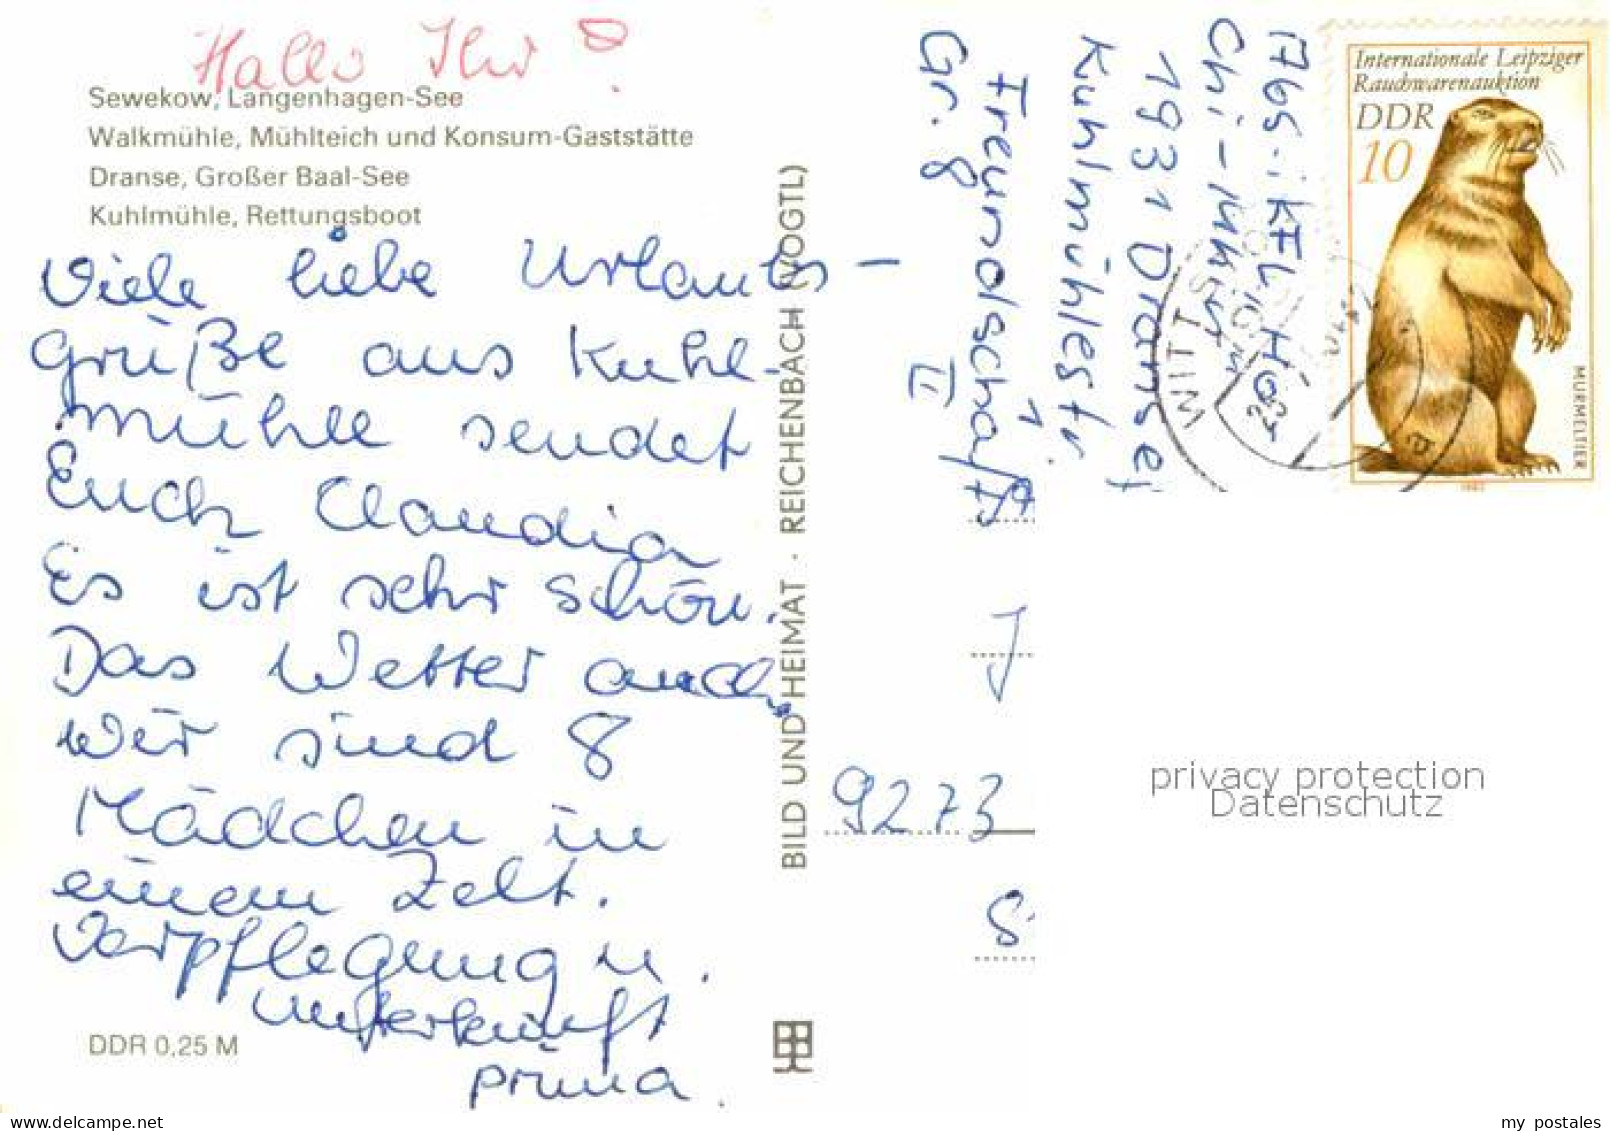 Hallo Ihr 8!
Sewekow, Langenhagen-See
Walkmühle, Mühlteich und Konsum-Gaststätte
Dranse, Großer Baal-See
Kuhlmühle, Rettungsboot
Viele liebe Urlaubs-
grüße aus Kuhl-
mühle sendet
Euch Claudia
Es ist sehr schön.
Das Wetter auch,
Wir sind 8
Mädchen in
einem Zelt.
Verpflegung u.
Unterkunft
prima.
DDR 0,25 M
BILD UND HEIMAT · REICHENBACH (VOGTL)
Abs.: KFL
1931 Dranse
Kuhlmühlestr. 1
Freundschaft II
Gr. 8
Internationale Leipziger
Rauchwarenauktion
DDR
10
MURMELTIER
1982
WITTS
J
9273
privacy protection
Datenschutz
my postales